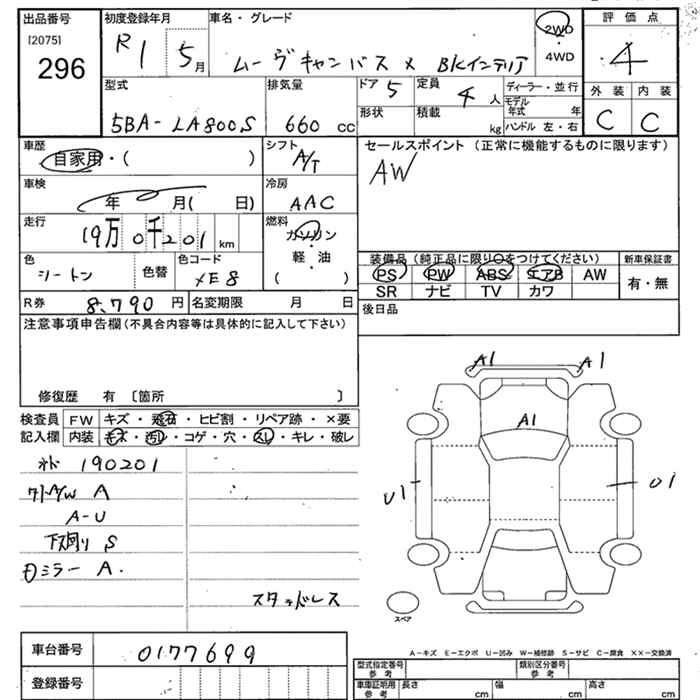 出品番号 初度登録年月 車名・グレード 2WD 評価点
[2075] R1 5月 ムーヴキャンバス X BKインテリア ・4WD 4
296 型式 排気量 ドア 5 定員 4人 ディーラー・並行 外装 内装
5BA-LA800S 660 cc 形状 積載 kg モデル年式 年 ハンドル 左・右 C C
車歴 自家用・( ) シフト A/T セールスポイント (正常に機能するものに限ります)
AW
車検 年 月( 日) 冷房 AAC
走行 19万0千201km 燃料 ガソリン・軽油・( )
装備品 (純正品に限り○をつけてください) 新車保証書
色 シートン 色替 色コード XE8 PS PW ABS エアB AW 有・無
SR ナビ TV カワ
R券 8,790円 名変期限 月 日 後日品
注意事項申告欄(不具合内容等は具体的に記入して下さい)
修復歴 有 〔箇所 〕
検査員 FW キズ・飛石・ヒビ割・リペア跡・×要
記入欄 内装 キズ・汚れ・コゲ・穴・スレ・キレ・破レ
190201
A
A-U
下廻り S
ミラー A.
スタッドレス
A1 A1
A1
U1 U1
スペア
車台番号 0177699
登録番号
A-キズ E-エクボ U-凹み W-補修跡 S-サビ C-腐食 ××-交換済
型式指定番号 参考 類別区分番号 参考
車庫証明用 参考 長さ cm 幅 cm 高さ cm